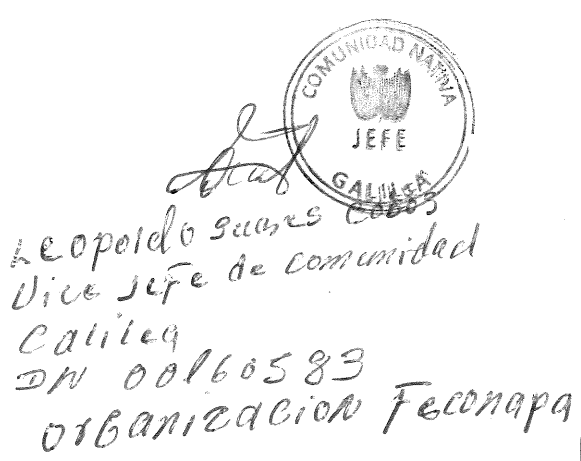 COMUNIDAD NATIVA
JEFE
GALILEA
Leopoldo Suares Cobos
Vice Jefe de comunidad
Calilea
DN 00160583
Organizacion Feconapa